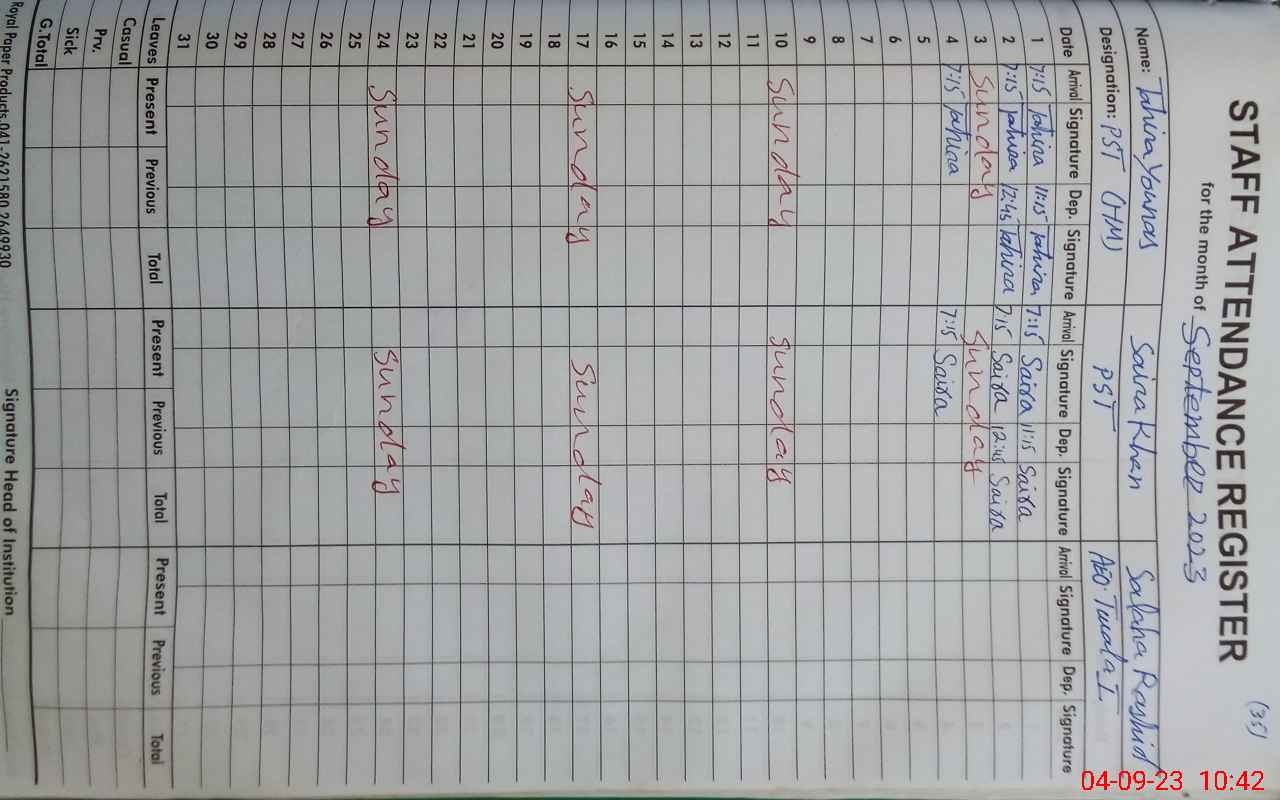 (35)
STAFF ATTENDANCE REGISTER
for the month of September 2023
Name: Tahira Younas Saira Khan Salaha Rashid
Designation: PST (HM) PST AEO. Twala I
Date Arrival Signature Dep. Signature Arrival Signature Dep. Signature Arrival Signature Dep. Signature
1 7:15 Tahira 11:15 Tahira 7:15 Saira 11:15 Saira
2 7:15 Tahira 12:45 Tahira 7:15 Saira 12:45 Saira
3 Sunday Sunday
4 7:15 Tahira 7:15 Saira
5
6
7
8
9
10 Sunday Sunday
11
12
13
14
15
16
17 Sunday Sunday
18
19
20
21
22
23
24 Sunday Sunday
25
26
27
28
29
30
31
Leaves Present Previous Total Present Previous Total Present Previous Total
Casual
Prv.
Sick
G.Total
Royal Paper Products.041-2621580,2649930 Signature Head of Institution
04-09-23 10:42